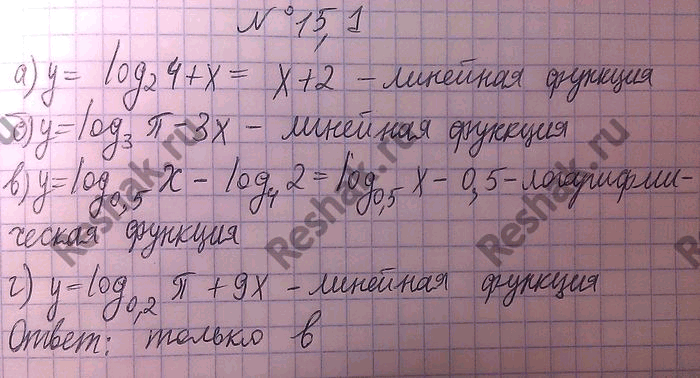 № 15,1
а) y = log₂ 4 + x = x + 2 – линейная функция
б) y = log₃ π – 3x – линейная функция
в) y = log₀,₅ x – log₄ 2 = log₀,₅ x – 0,5 – логарифми-
ческая функция
г) y = log₀,₂ π + 9x – линейная функция
Ответ: только в
Reshak.ru
Reshak.ru
Reshak.ru
Reshak.ru